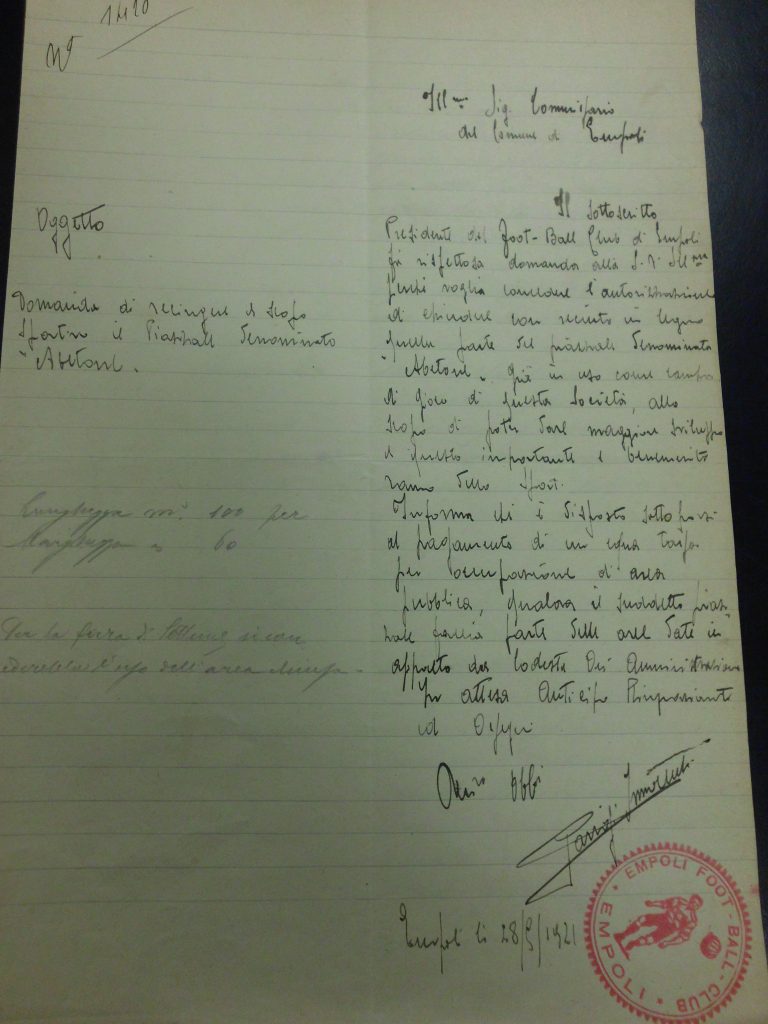 Nº 1420
Ill.mo Sig. Commissario
del Comune di Empoli
Oggetto
Domanda di recingere a scopo
sportivo il Piazzale denominato
"Abetone".
Lunghezza m. 100 per
Larghezza " 60
Per la fiera di Settembre, si con
dell'area
Il sottoscritto
Presidente del Foot-Ball Club di Empoli
fa rispettosa domanda alla S.V. Ill.ma
perché voglia concedere l'autorizzazione
di chiudere con recinto in legno
quella parte del piazzale denominata
"Abetone" già in uso come campo
di gioco di questa Società, allo
scopo di poter dare maggior sviluppo
a questo importante e benemerito
ramo dello sport.
Informa che è disposto sottoporsi
al pagamento di un equa tassa
per occupazione d'area
pubblica, qualora il suddetto piaz-
zale faccia parte delle aree date in
appalto da codesta On. Amministrazione
In attesa anticipo Ringraziamenti
ed Ossequi
Dev.mo Obb.
Empoli li 28/9/1921
EMPOLI FOOT-BALL-CLUB · EMPOLI ·